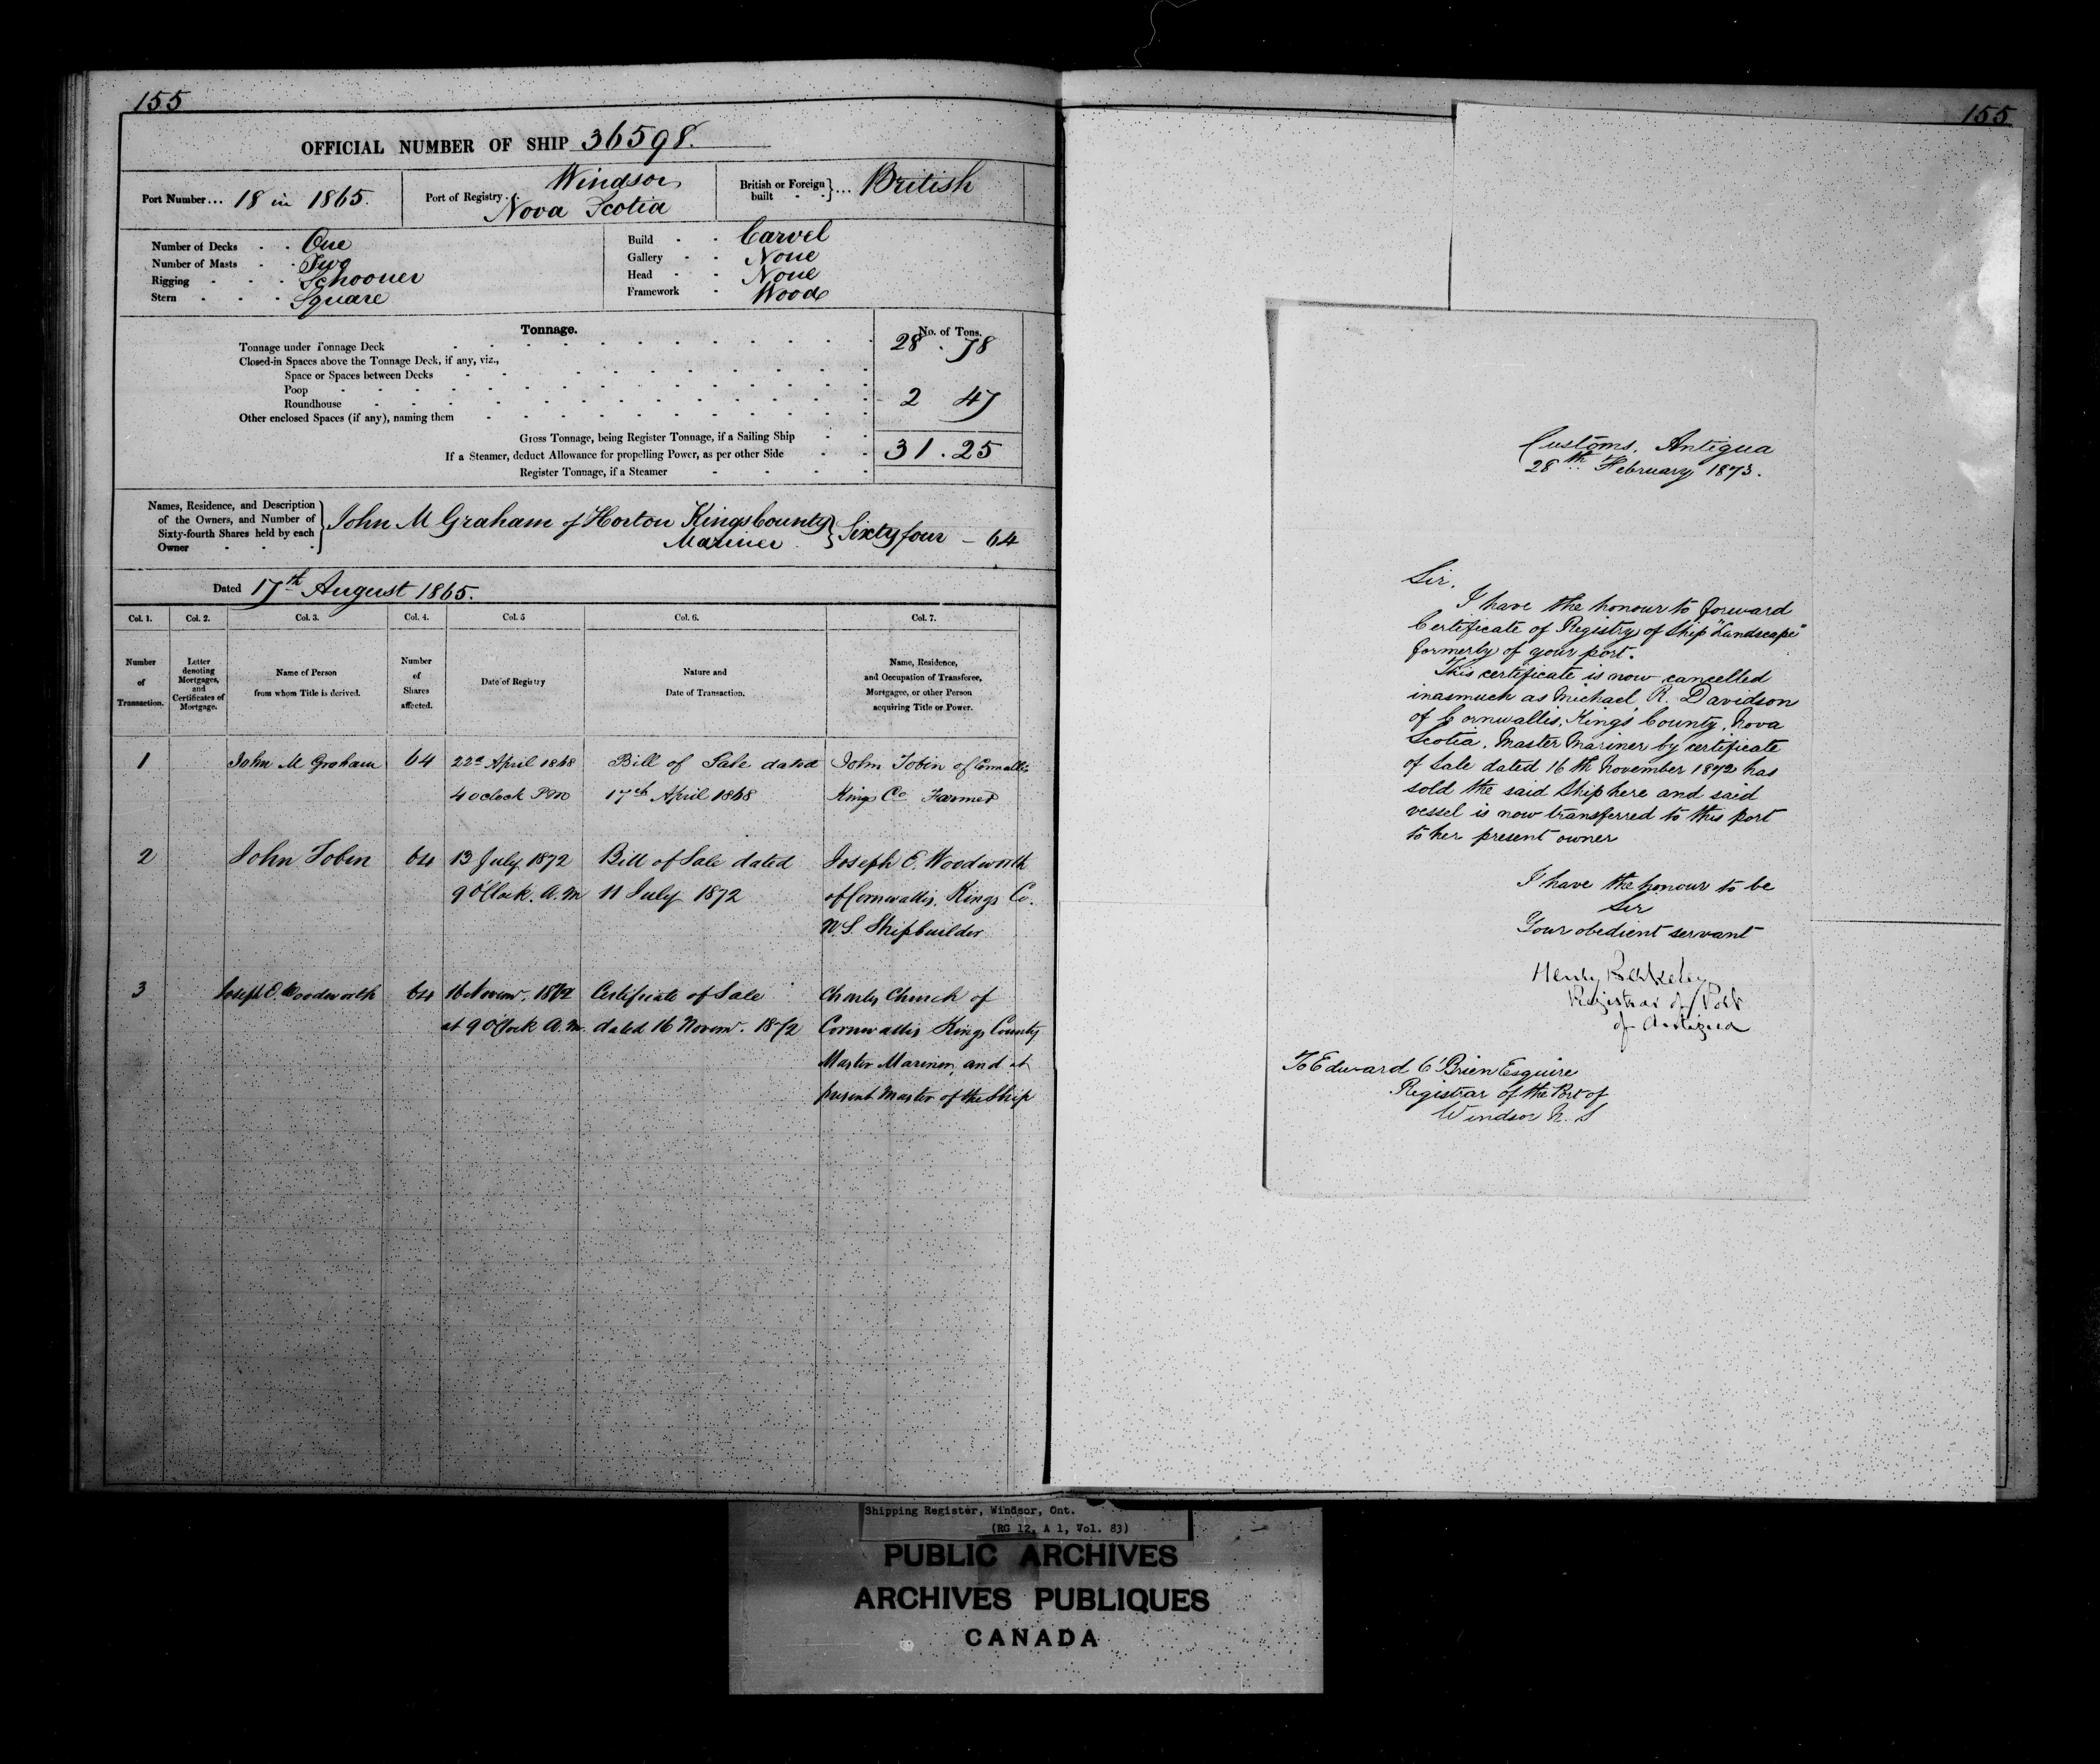 155
OFFICIAL NUMBER OF SHIP 36598.
Port Number... 18 in 1865.
Port of Registry. Windsor,
Nova Scotia
British or Foreign built } ... British
Number of Decks - - One
Number of Masts - - Two
Rigging - - - Schooner
Stern - - - Square
Build - - Carvel
Gallery - - None
Head - - None
Framework - Wood
Tonnage.
No. of Tons.
Tonnage under Tonnage Deck 28 . 78
Closed-in Spaces above the Tonnage Deck, if any, viz.,
Space or Spaces between Decks
Poop 2 47
Roundhouse
Other enclosed Spaces (if any), naming them
Gross Tonnage, being Register Tonnage, if a Sailing Ship
If a Steamer, deduct Allowance for propelling Power, as per other Side 31 . 25
Register Tonnage, if a Steamer
Names, Residence, and Description
of the Owners, and Number of
Sixty-fourth Shares held by each
Owner
John M Graham of Horton Kings County } Sixty four – 64
Mariner
Dated 17th August 1865.
Col. 1. Col. 2. Col. 3. Col. 4. Col. 5 Col. 6. Col. 7.
Number
of
Transaction.
Letter
denoting
Mortgages,
and
Certificates of
Mortgage.
Name of Person
from whom Title is derived.
Number
of
Shares
affected.
Date of Registry
Nature and
Date of Transaction.
Name, Residence,
and Occupation of Transferee,
Mortgagee, or other Person
acquiring Title or Power.
1 John M Graham 64 22d April 1868 Bill of Sale dated John Tobin of Cornwallis
4 oclock PM 17th April 1868 Kings Co Farmer
2 John Tobin 64 13 July 1872 Bill of Sale dated Joseph E. Woodworth
9 O'Clock. A.M 11 July 1872 of Cornwallis. Kings Co.
N.S. Shipbuilder
3 Joseph E. Woodworth 64 16 Novemr. 1872 Certificate of Sale Charles Church of
at 9 O'Clock A.M. dated 16 Novemr. 1872 Cornwallis Kings County
Master Mariner, and at
present Master of the Ship
155
Customs, Antigua
28th February, 1873.
Sir.
I have the honour to forward
Certificate of Registry of Ship "Landscape"
formerly of your port.
This certificate is now cancelled
inasmuch as Michael R. Davidson
of Cornwallis, Kings County, Nova
Scotia, Master Mariner by certificate
of Sale dated 16 th November 1872 has
sold the said Ship here and said
vessel is now transferred to this port
to her present owner
I have the honour to be
Sir
Your obedient servant
Henry Berkeley
Registrar of Port
of Antigua
To Edward O'Brien Esquire
Registrar of the Port of
Windsor N. S
Shipping Register, Windsor, Ont.
(RG 12, A 1, Vol. 83)
PUBLIC ARCHIVES
ARCHIVES PUBLIQUES
CANADA